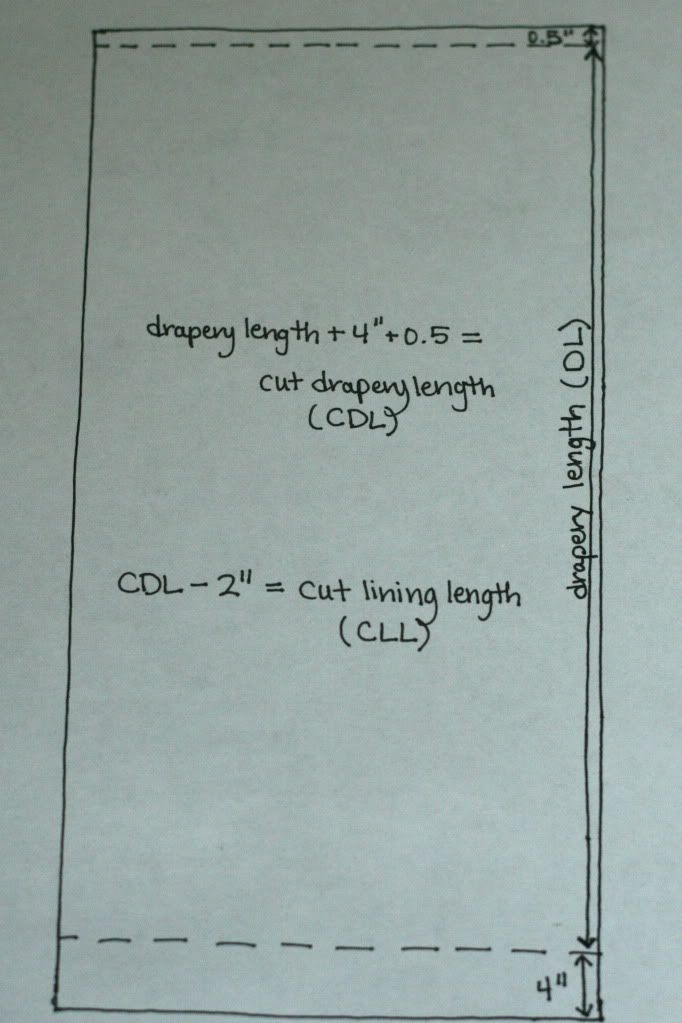 0.5"
drapery length + 4" + 0.5 =
cut drapery length
(CDL)
drapery length (DL)
CDL - 2" = cut lining length
(CLL)
4"